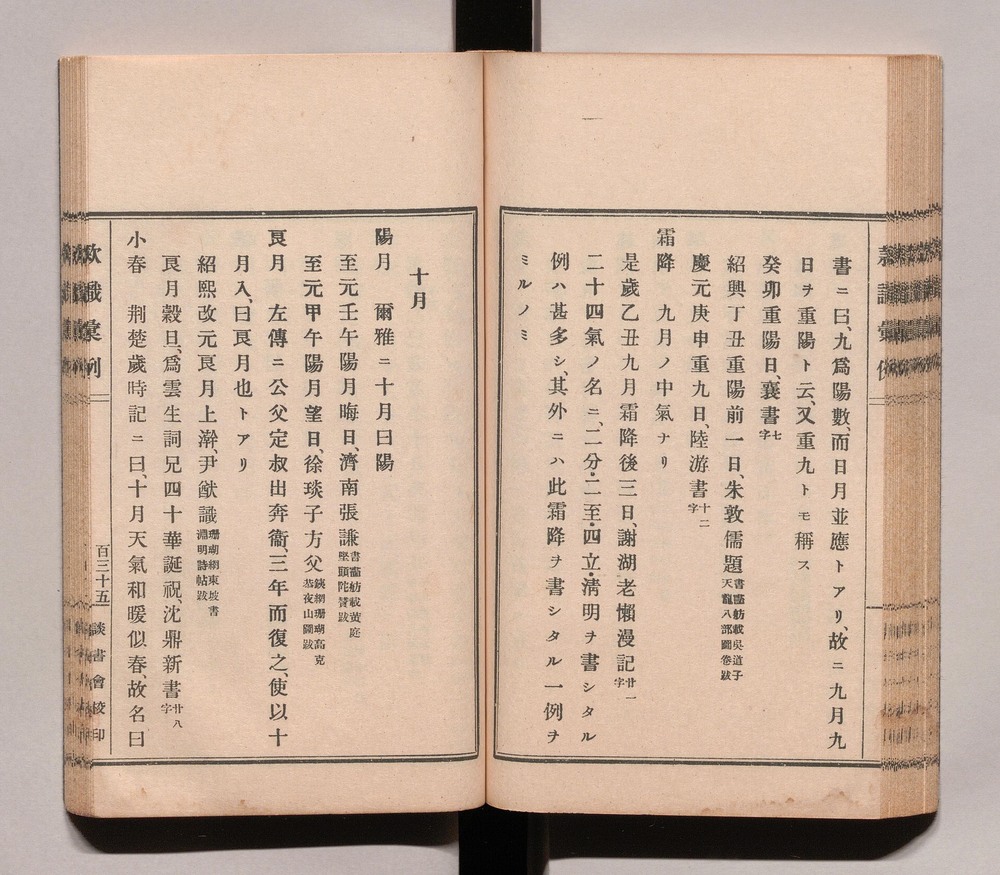 書ニ曰、九爲陽數、而日月並應トアリ、故ニ九月九
日ヲ重陽ト云、又重九トモ稱ス
癸卯重陽日、襄書七字
紹興丁丑重陽前一日、朱敦儒題書畵舫載吳道子天龍八部圖卷跋
慶元庚申重九日、陸游書十二字
霜降　九月ノ中氣ナリ
是歲乙丑九月霜降後三日、謝湖老懶漫記廿一字
二十四氣ノ名ニ、二分・二至・四立・淸明ヲ書シタル
例ハ甚多シ、其外ニハ此霜降ヲ書シタル一例ヲ
ミルノミ
十月
陽月　爾雅ニ十月曰陽
至元壬午陽月晦日、濟南張謙書畵舫載黄庭堅頭陀贊跋
至元甲午陽月望日、徐琰子方父鐵網珊瑚高克恭夜山圖跋
良月　左傳ニ公父定叔出奔衞、三年而復之、使以十
月入、曰良月也トアリ
紹熙改元良月上澣、尹猷識珊瑚網東坡書淵明詩帖跋
良月穀旦、爲雲生詞兄四十華誕祝、沈鼎新書廿八字
小春　荆楚歲時記ニ曰、十月天氣和暖似春、故名曰
款識彙例
百三十五
談書會校印